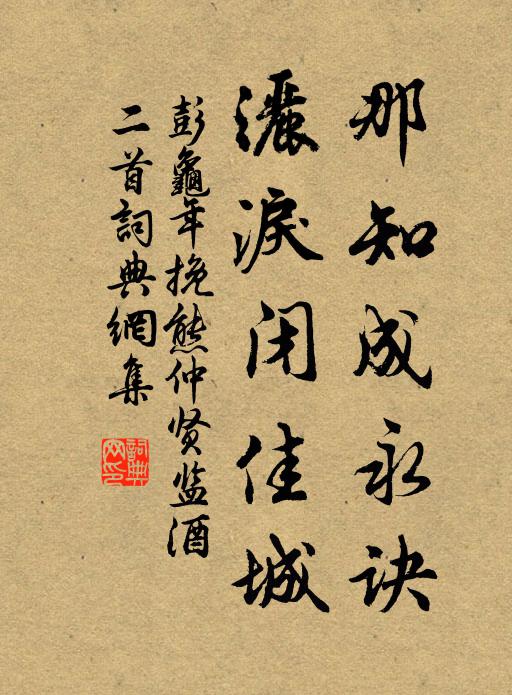 那知成永诀
灑淚闭佳城
彭龜年挽熊仲贤监酒
二首詞典網集
詞典網印